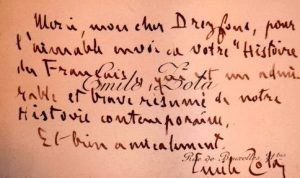 Merci, mon cher Dreyfous, pour
l'aimable envoi de votre "Histoire
des Français", qui est un admi-
rable et brave résumé de notre
Histoire contemporaine.
Et bien amicalement.
Emile Zola
Emile Zola
Rue de Bruxelles, 21 bis